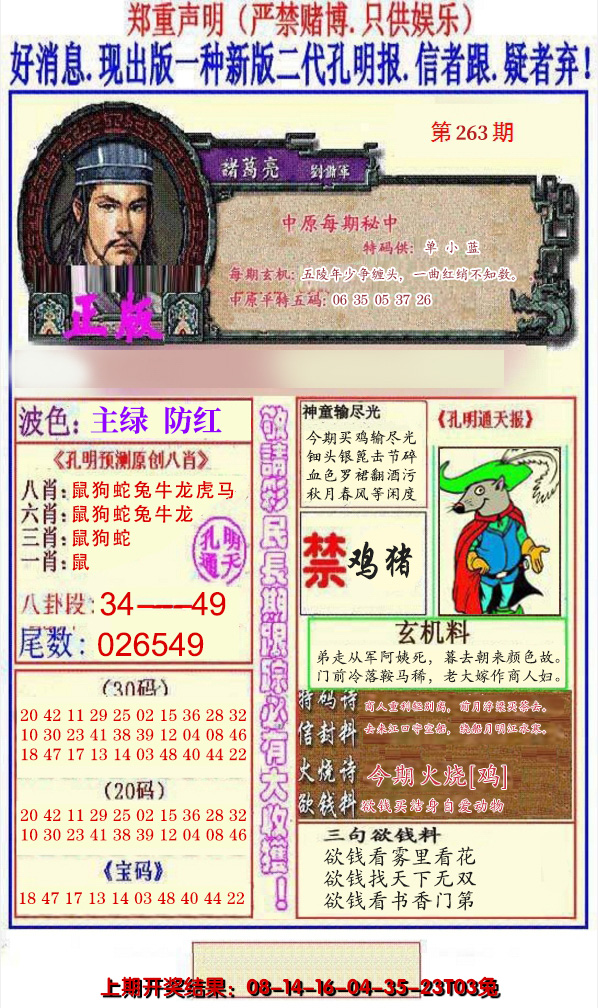 郑重声明（严禁赌博.只供娱乐）
好消息.现出版一种新版二代孔明报.信者跟.疑者弃！
第263期
諸葛亮 劉備軍
中原每期秘中
特码供：单 小 蓝
每期玄机：五陵年少争缠头，一曲红绡不知数。
中原平特五码：06 35 05 37 26
正版
波色：主绿 防红
《孔明预测原创八肖》
八肖：鼠狗蛇兔牛龙虎马
六肖：鼠狗蛇兔牛龙
三肖：鼠狗蛇
一肖：鼠
孔明
通天
八卦段：34——49
尾数：026549
（30码）
20 42 11 29 25 02 15 36 28 32
10 30 23 41 38 39 12 04 08 46
18 47 17 13 14 03 48 40 44 22
（20码）
20 42 11 29 25 02 15 36 28 32
10 30 23 41 38 39 12 04 08 46
《宝码》
18 47 17 13 14 03 48 40 44 22
敬請彩民長期跟踪必有大收獲！
神童输尽光
今期买鸡输尽光
钿头银篦击节碎
血色罗裙翻酒污
秋月春风等闲度
《孔明通天报》
禁 鸡猪
玄机料
弟走从军阿姨死，暮去朝来颜色故。
门前冷落鞍马稀，老大嫁作商人妇。
特码诗 商人重利轻别离，前月浮梁买茶去。
信封料 去来江口守空船，绕船月明江水寒。
火烧诗 今期火烧[鸡]
欲钱料 欲钱买洁身自爱动物
三句欲钱料
欲钱看雾里看花
欲钱找天下无双
欲钱看书香门第
上期开奖结果：08-14-16-04-35-23T03兔